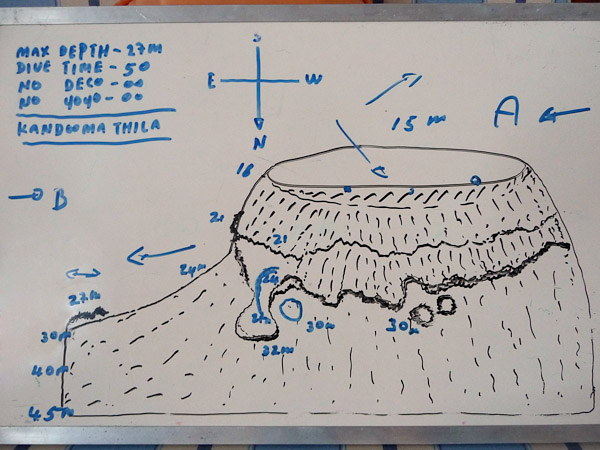 MAX DEPTH - 27M
DIVE TIME - 50
NO DECO - 00
NO YOYO - 00
KANDOOMA THILA
S
E W
N
15 m
A
B
16
21
21
24m
24
27m
30m
32m
30m
30m
40m
45m